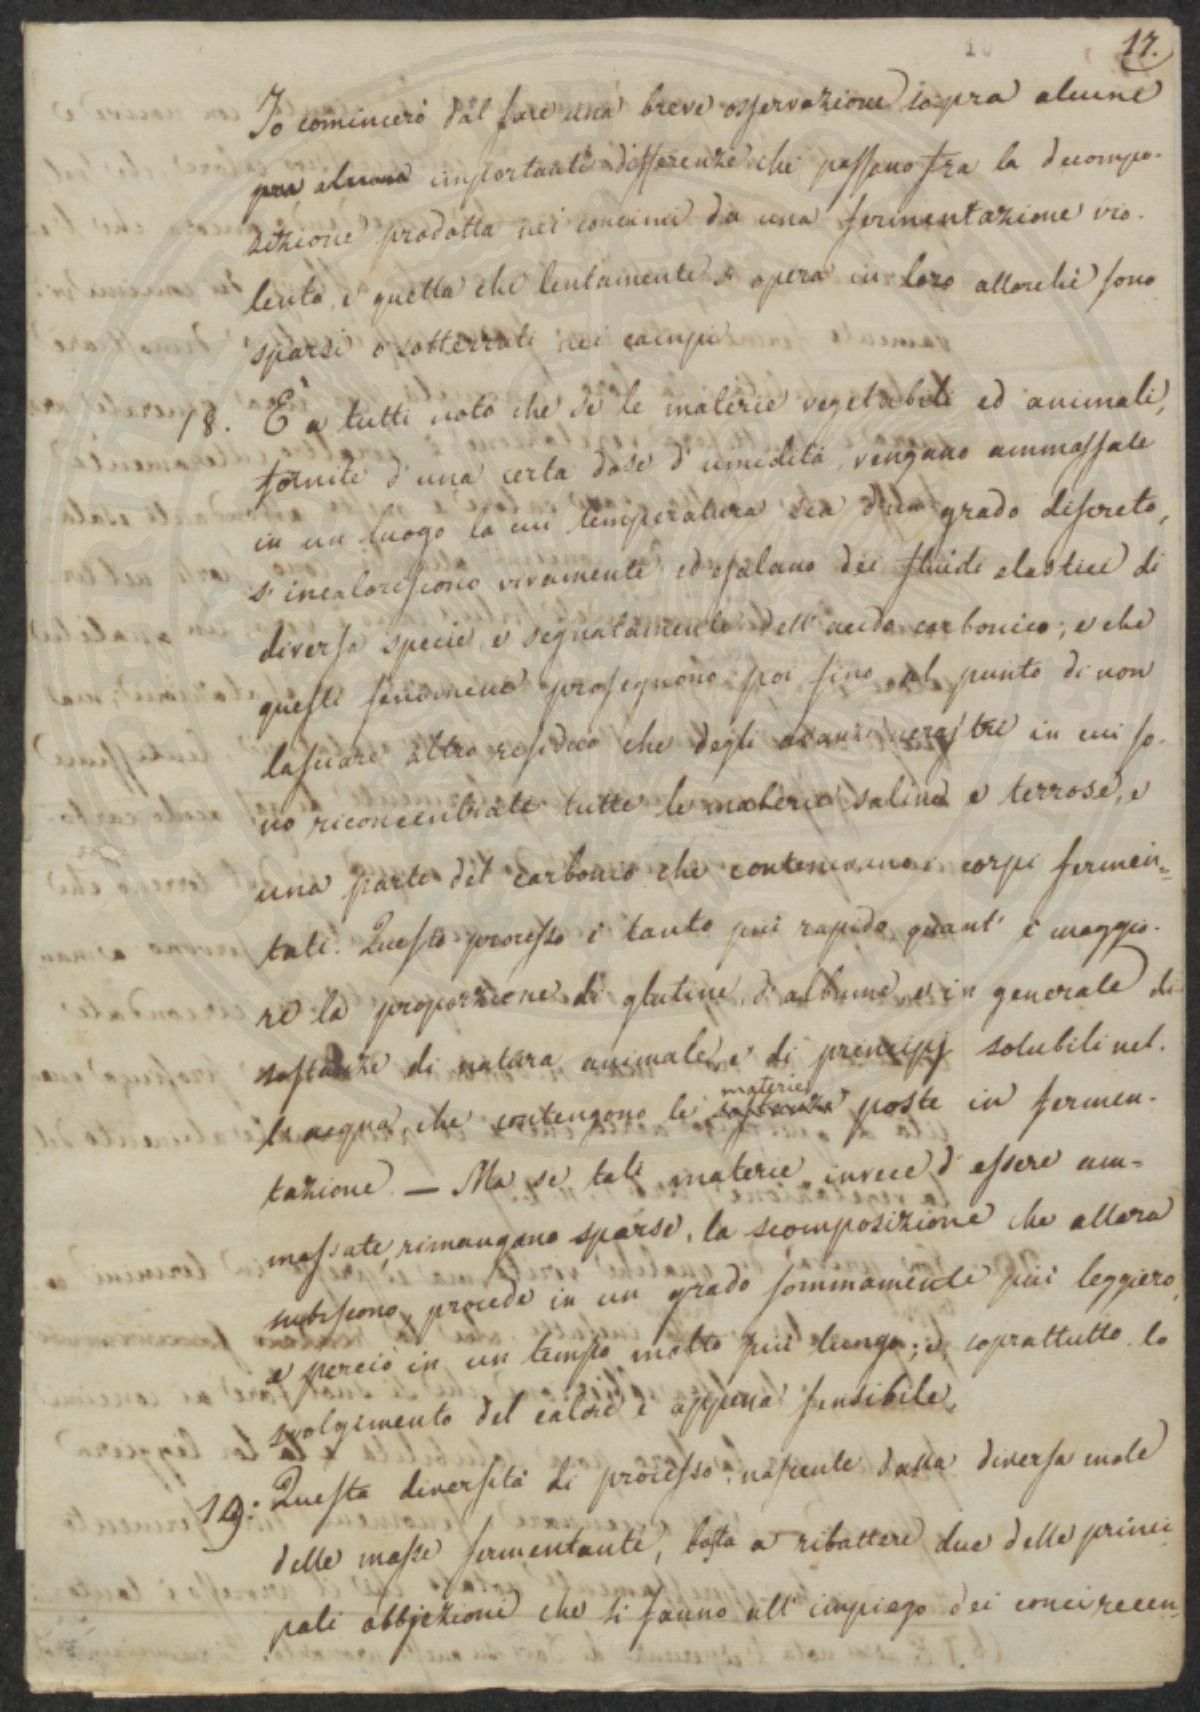 17.
Io comincerò dal fare una breve osservazione sopra alcune
pra alcune importanti differenze che passano fra la decompo-
sizione prodotta nei concimi da una fermentazione vio-
lenta, e quella che lentamente si opera in loro allorchè sono
sparsi o sotterrati nei campi.
18. È a tutti noto che se le materie vegetabili ed animali,
fornite d'una certa dose d'umidità, vengano ammassate
in un luogo la cui temperatura sia d'un grado discreto,
s'incaloriscono vivamente ed esalano dei fluidi elastici di
diversa specie, e segnatamente dell'acido carbonico; e che
questi fenomeni proseguono poi fino al punto di non
lasciare altro residuo che degli avanzi nerastri in cui so-
no riconcentrate tutte le materie saline e terrose, e
una parte del carbonio che contenevano i corpi fermen=
tati. Questo processo è tanto più rapido quant'è maggio-
re la proporzione di glutine, d'albume, e in generale di
sostanze di natura animale, e di principj solubili nel-
l'acqua, che contengono le sostanze materie poste in fermen-
tazione. — Ma se tali materie, invece d'essere am=
massate, rimangano sparse, la scomposizione che allora
subiscono, procede in un grado sommamente più leggiero,
e perciò in un tempo molto più lungo; e, soprattutto lo
svolgimento del calore è appena sensibile.
19. Questa diversità di processo, nascente dalla diversa mole
delle masse fermentanti, basta a ribattere due delle princi
pali obbjezioni che si fanno all'impiego dei conci recen-